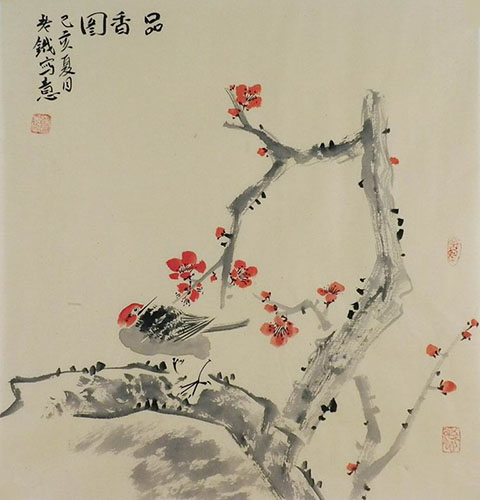 品香图
己亥夏月
老鐵写意